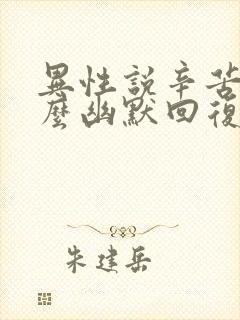 異性說辛苦
麼幽默回復
朱建岳